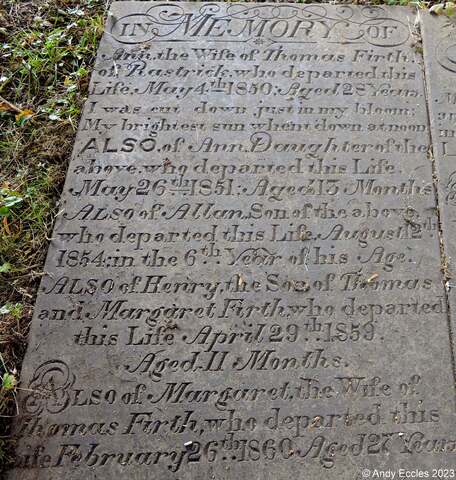 IN MEMORY OF
Ann, the Wife of Thomas Firth.
of Rastrick, who departed this
Life, May 4th 1850: Aged 28 Years.
I was cut down just in my bloom;
My brightest sun when't down at noon
ALSO, of Ann, Daughter of the
above, who departed this Life.
May 26th 1851: Aged 13 Months
ALSO of Allan, Son of the above,
who departed this Life, August 12th
1854: in the 6th Year of his Age.
ALSO of Henry, the Son, of Thomas
and Margaret Firth, who departed
this Life April 29th 1859.
Aged 11 Months.
ALSO of Margaret, the Wife of
Thomas Firth, who departed this
Life February 26th 1860. Aged 27 Years
© Andy Eccles 2023